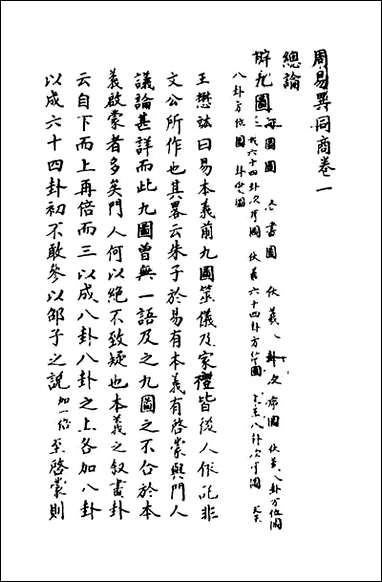 周易異同商卷一
總論
辨九圖 河圖圖 洛書圖 伏羲八卦次序圖 伏羲八卦方位圖
伏羲六十四卦次序圖 伏羲六十四卦方位圖 文王八卦次序圖 文王
八卦方位圖 卦變圖
王懋竑曰易本義前九圖筮儀及家禮皆後人依託非
文公所作也其畧云朱子於易有本義有啓蒙與門人
議論甚詳而此九圖曾無一語及之九圖之不合於本
義啟蒙者多矣門人何以絶不致疑也本義之叙畫卦
云自下而上再倍而三以成八卦八卦之上各加八卦
以成六十四卦初不敢參以邵子之説 加一倍 至啓蒙則